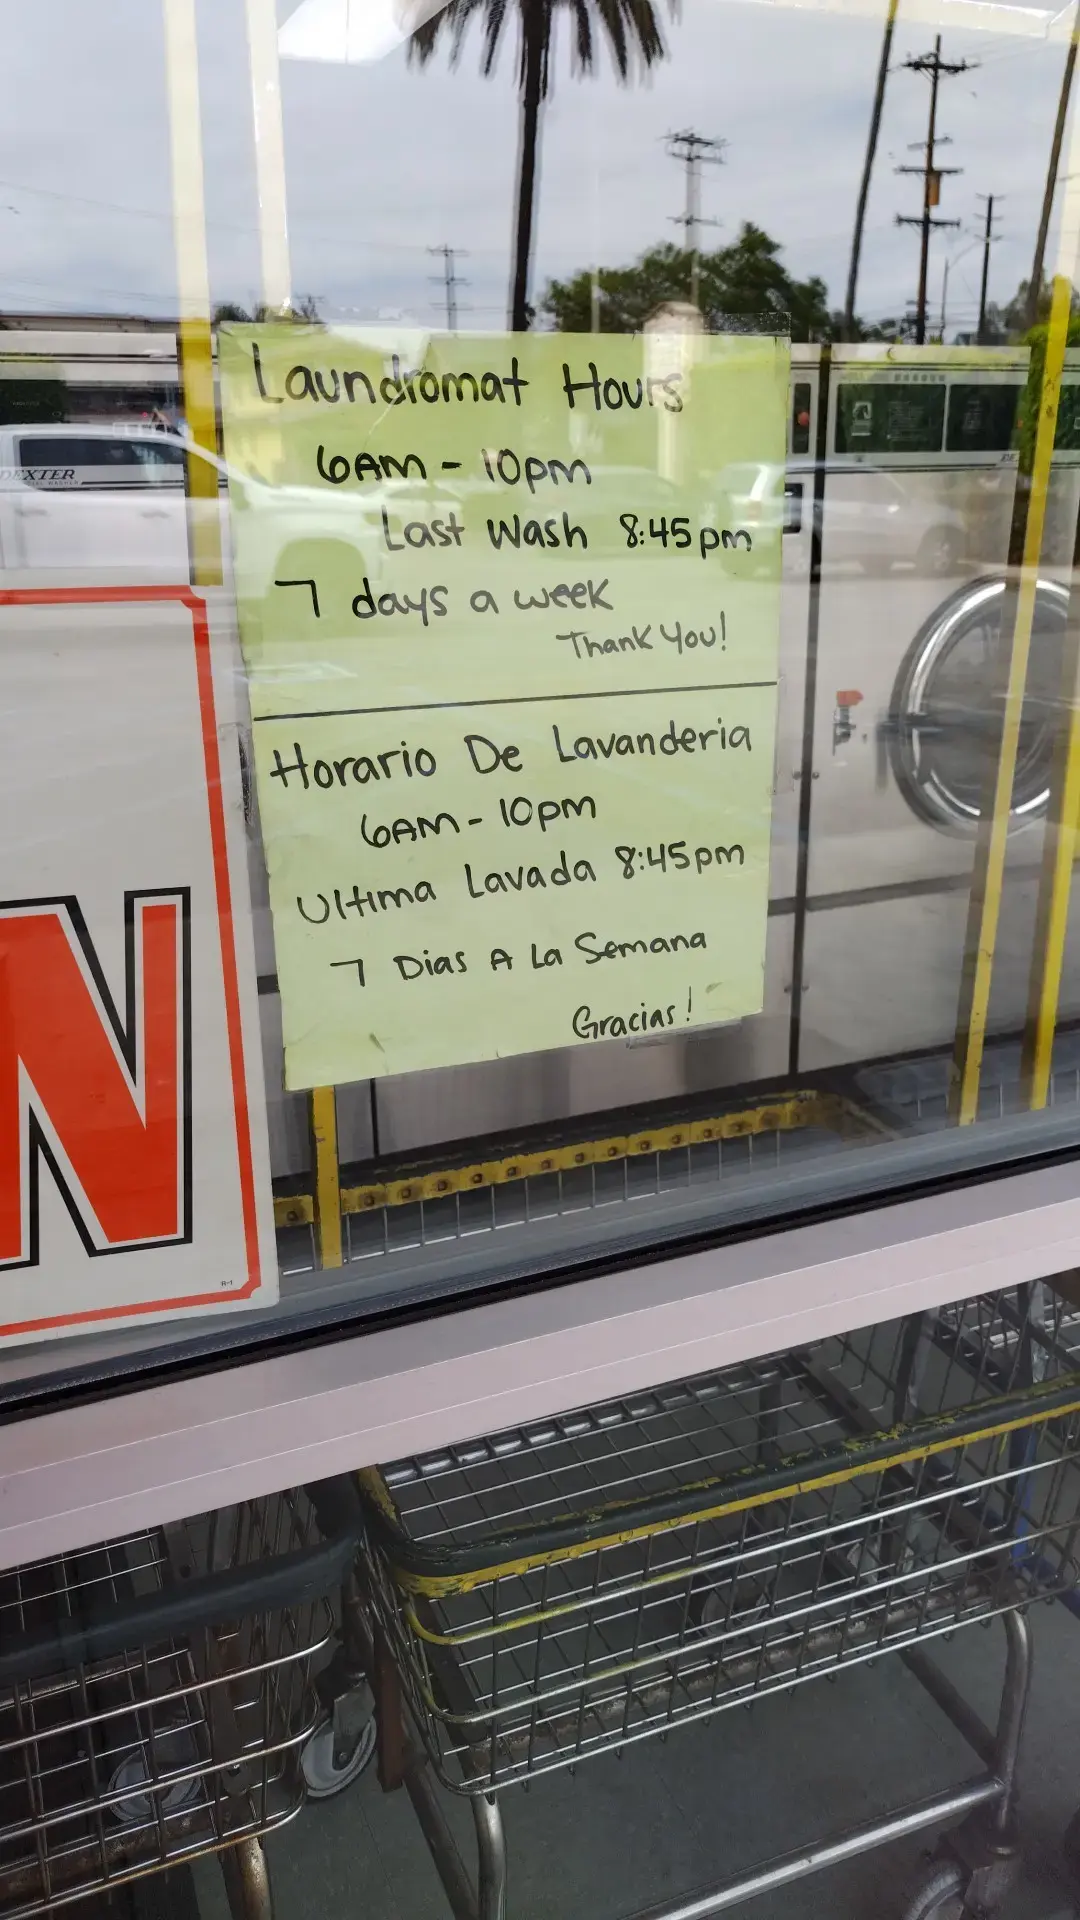 Laundromat Hours
6AM - 10pm
Last Wash 8:45pm
7 days a week
Thank You!
Horario De Lavanderia
6AM - 10pm
Ultima Lavada 8:45pm
7 Dias A La Semana
Gracias!
DEXTER
N
A-1